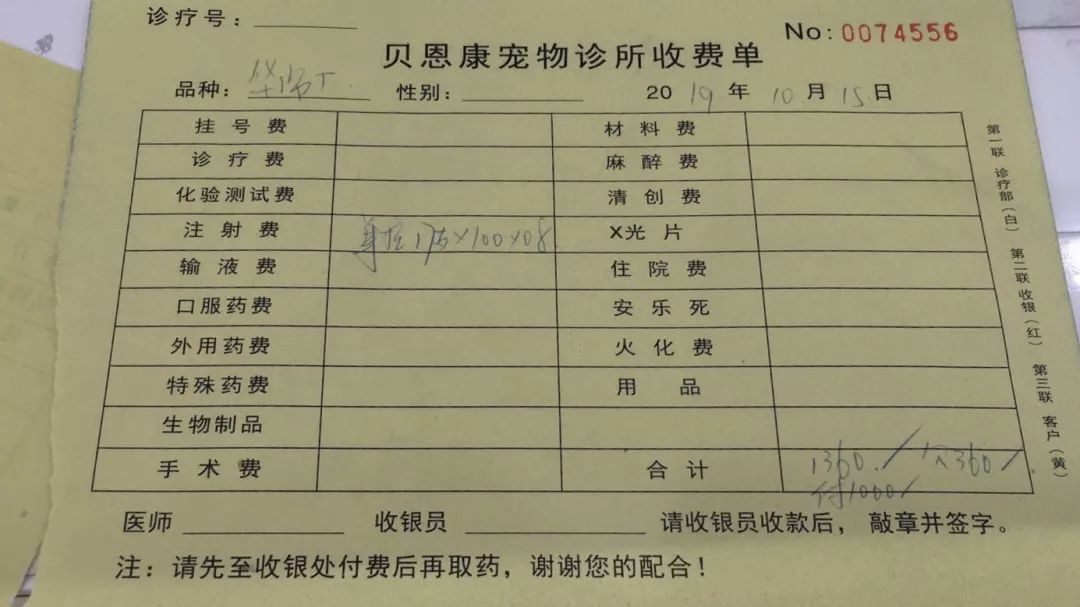 诊疗号：
No: 0074556
贝恩康宠物诊所收费单
品种： 性别： 2019年10月15日
挂号费 材料费
诊疗费 麻醉费
化验测试费 清创费
注射费 175×100×08 X光片
输液费 住院费
口服药费 安乐死
外用药费 火化费
特殊药费 用品
生物制品
手术费 合计 1360. / 欠360 /
付1000 /
医师 收银员 请收银员收款后，敲章并签字。
注：请先至收银处付费后再取药，谢谢您的配合！
第一联 诊疗部（白） 第二联 收银（红） 第三联 客户（黄）